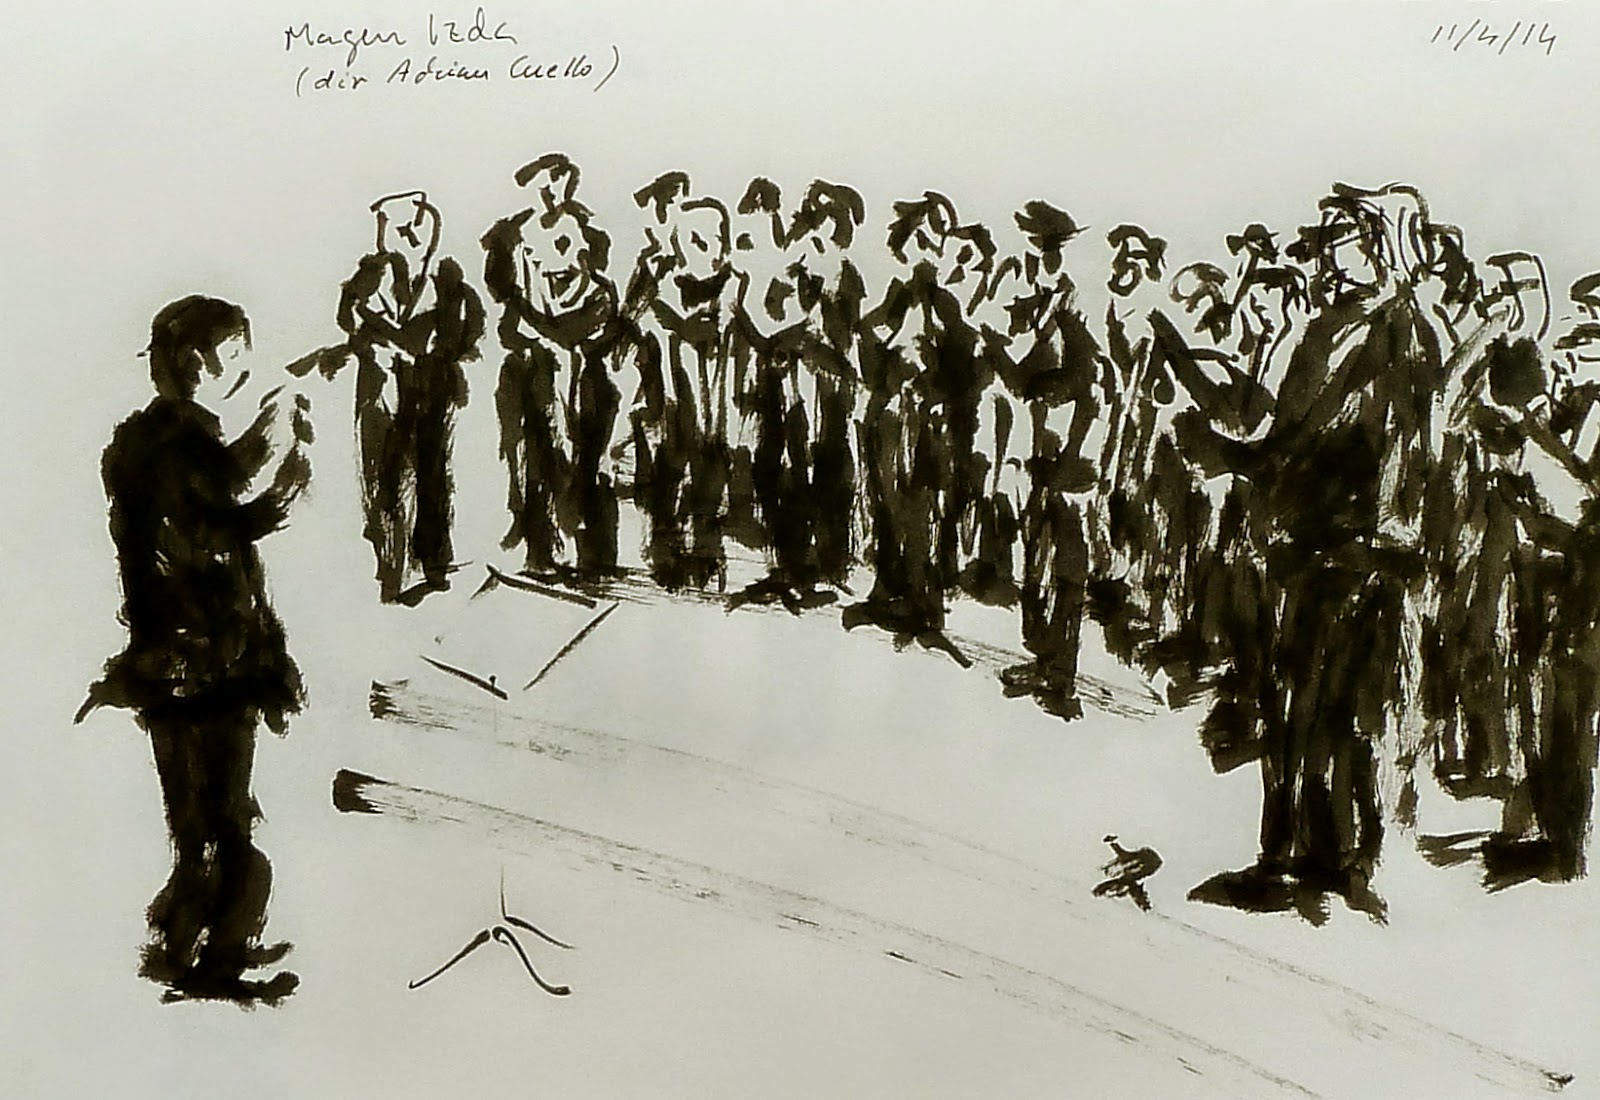 Margen Izda
(dir Adrian Cuello)
11/4/14